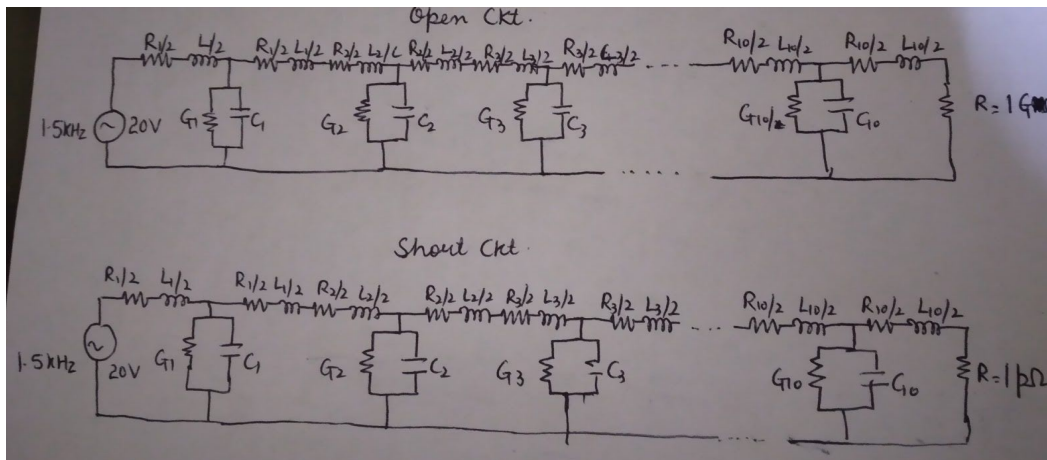 Open Ckt.
R1/2 L/2 R1/2 L1/2 R2/2 L2/2 R2/2 L2/2 R3/2 L3/2 R3/2 L3/2 ..... R10/2 L10/2 R10/2 L10/2
1.5kHz 20V G1 C1 G2 C2 G3 C3 G10 C10 R=1G
......
Shout Ckt.
R1/2 L/2 R1/2 L1/2 R2/2 L2/2 R2/2 L2/2 R3/2 L3/2 R3/2 L3/2 ..... R10/2 L10/2 R10/2 L10/2
1.5kHz 20V G1 C1 G2 C2 G3 C3 G10 C10 R=1pΩ
......